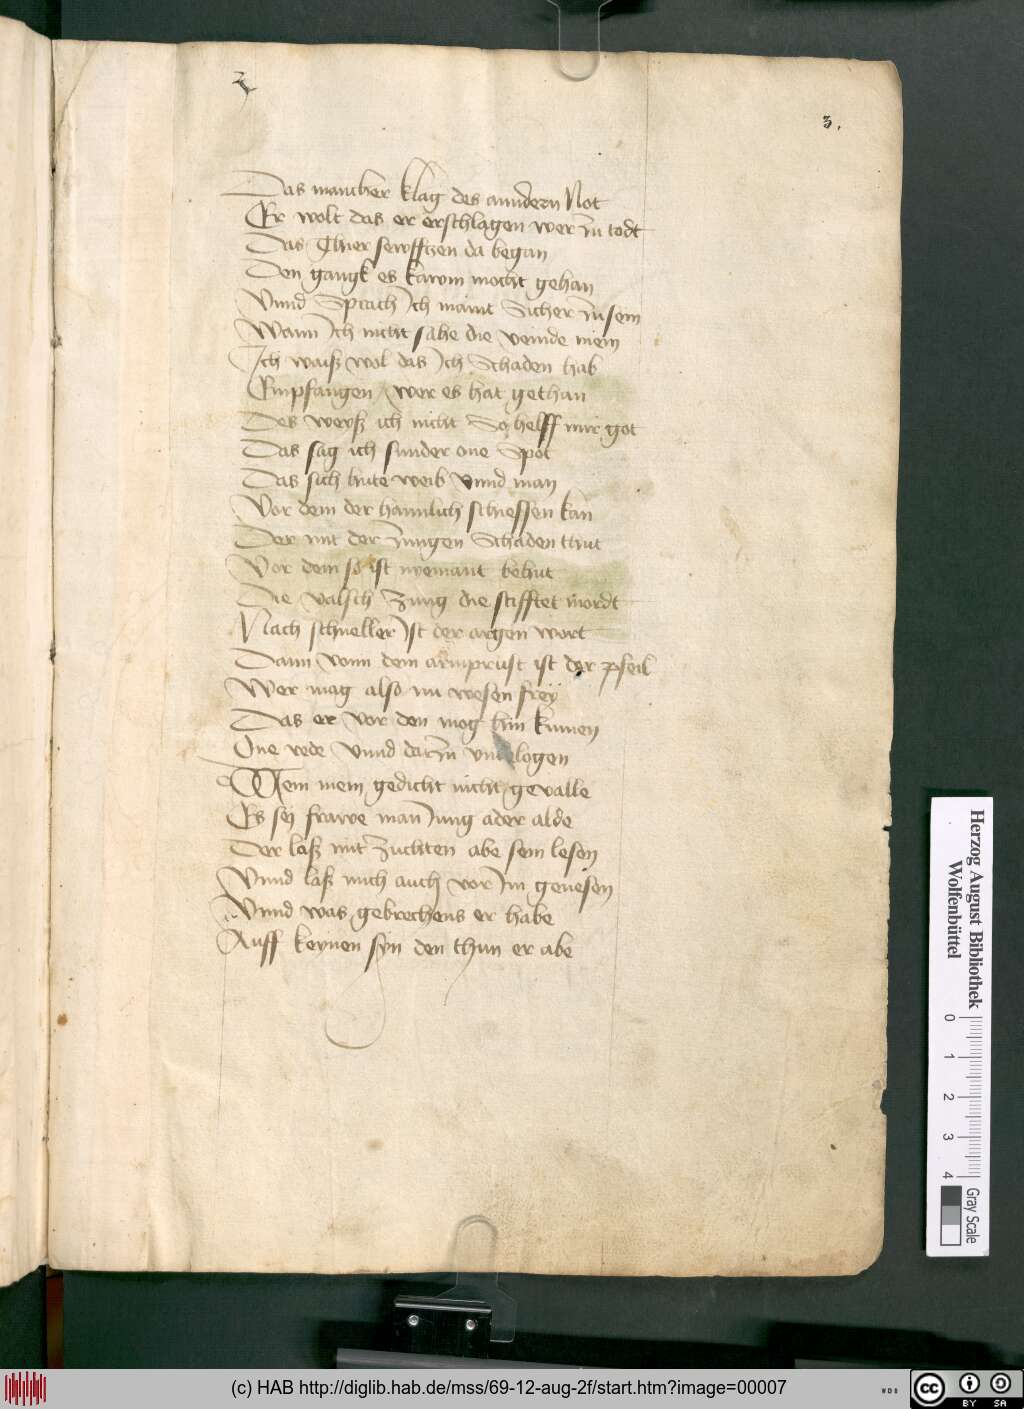 3.
Das mancher klag des anndern Not
Er wolt das er erschlagen wer Im todt
Das Thier sewfftzen da began
Den gangk es kawm mocht gehan
Vnnd Sprach Ich maint Sicher Im sein
Wann Ich nicht sahe die veinde mein
Ich waiß wol das Ich Schaden hab
Empfangen / wer es hat gethan
Des weyß ich nicht So helff mir got
Das sag ich sunder one Spot
Das sich hute weib vnnd man
Vor dem der hannlich schiessen kan
Der mit der Zungen Schaden thut
Vor dem so ist nyemant behut
Die valsch Zung die stifftet mordt
Nach schneller Ist der argen wort
Dann vonn dem armprust ist der pfeil
Wer mag also nu wesen frey
Das er vor den mog hin kumen
One rede vnnd darzu vnbelogen
Wem mein gedicht nicht gevalle
Es sy frawe man Iung ader alde
Der laß mit Zuchten abe sein lesen
Vnnd laß mich auch vor Im genesen
Vnnd was gebrechens er habe
Auff keynen syn den thun er abe
Herzog August Bibliothek
Wolfenbüttel
0 1 2 3 4
Gray Scale
(c) HAB http://diglib.hab.de/mss/69-12-aug-2f/start.htm?image=00007
WDB
cc BY SA